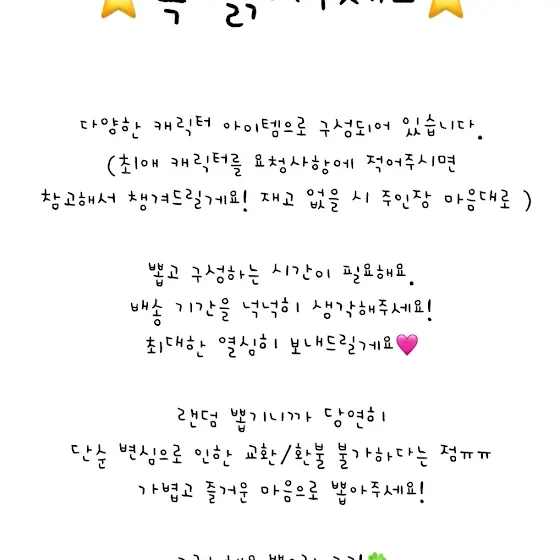 다양한 캐릭터 아이템으로 구성되어 있습니다.
(최애 캐릭터를 요청사항에 적어주시면
참고해서 챙겨드릴게요! 재고 없을 시 주인장 마음대로 )
뽑고 구성하는 시간이 필요해요.
배송 기간을 넉넉히 생각해주세요!
최대한 열심히 보내드릴게요🩷
랜덤 뽑기니까 당연히
단순 변심으로 인한 교환/환불 불가하다는 점ㅠㅠ
가볍고 즐거운 마음으로 뽑아주세요!